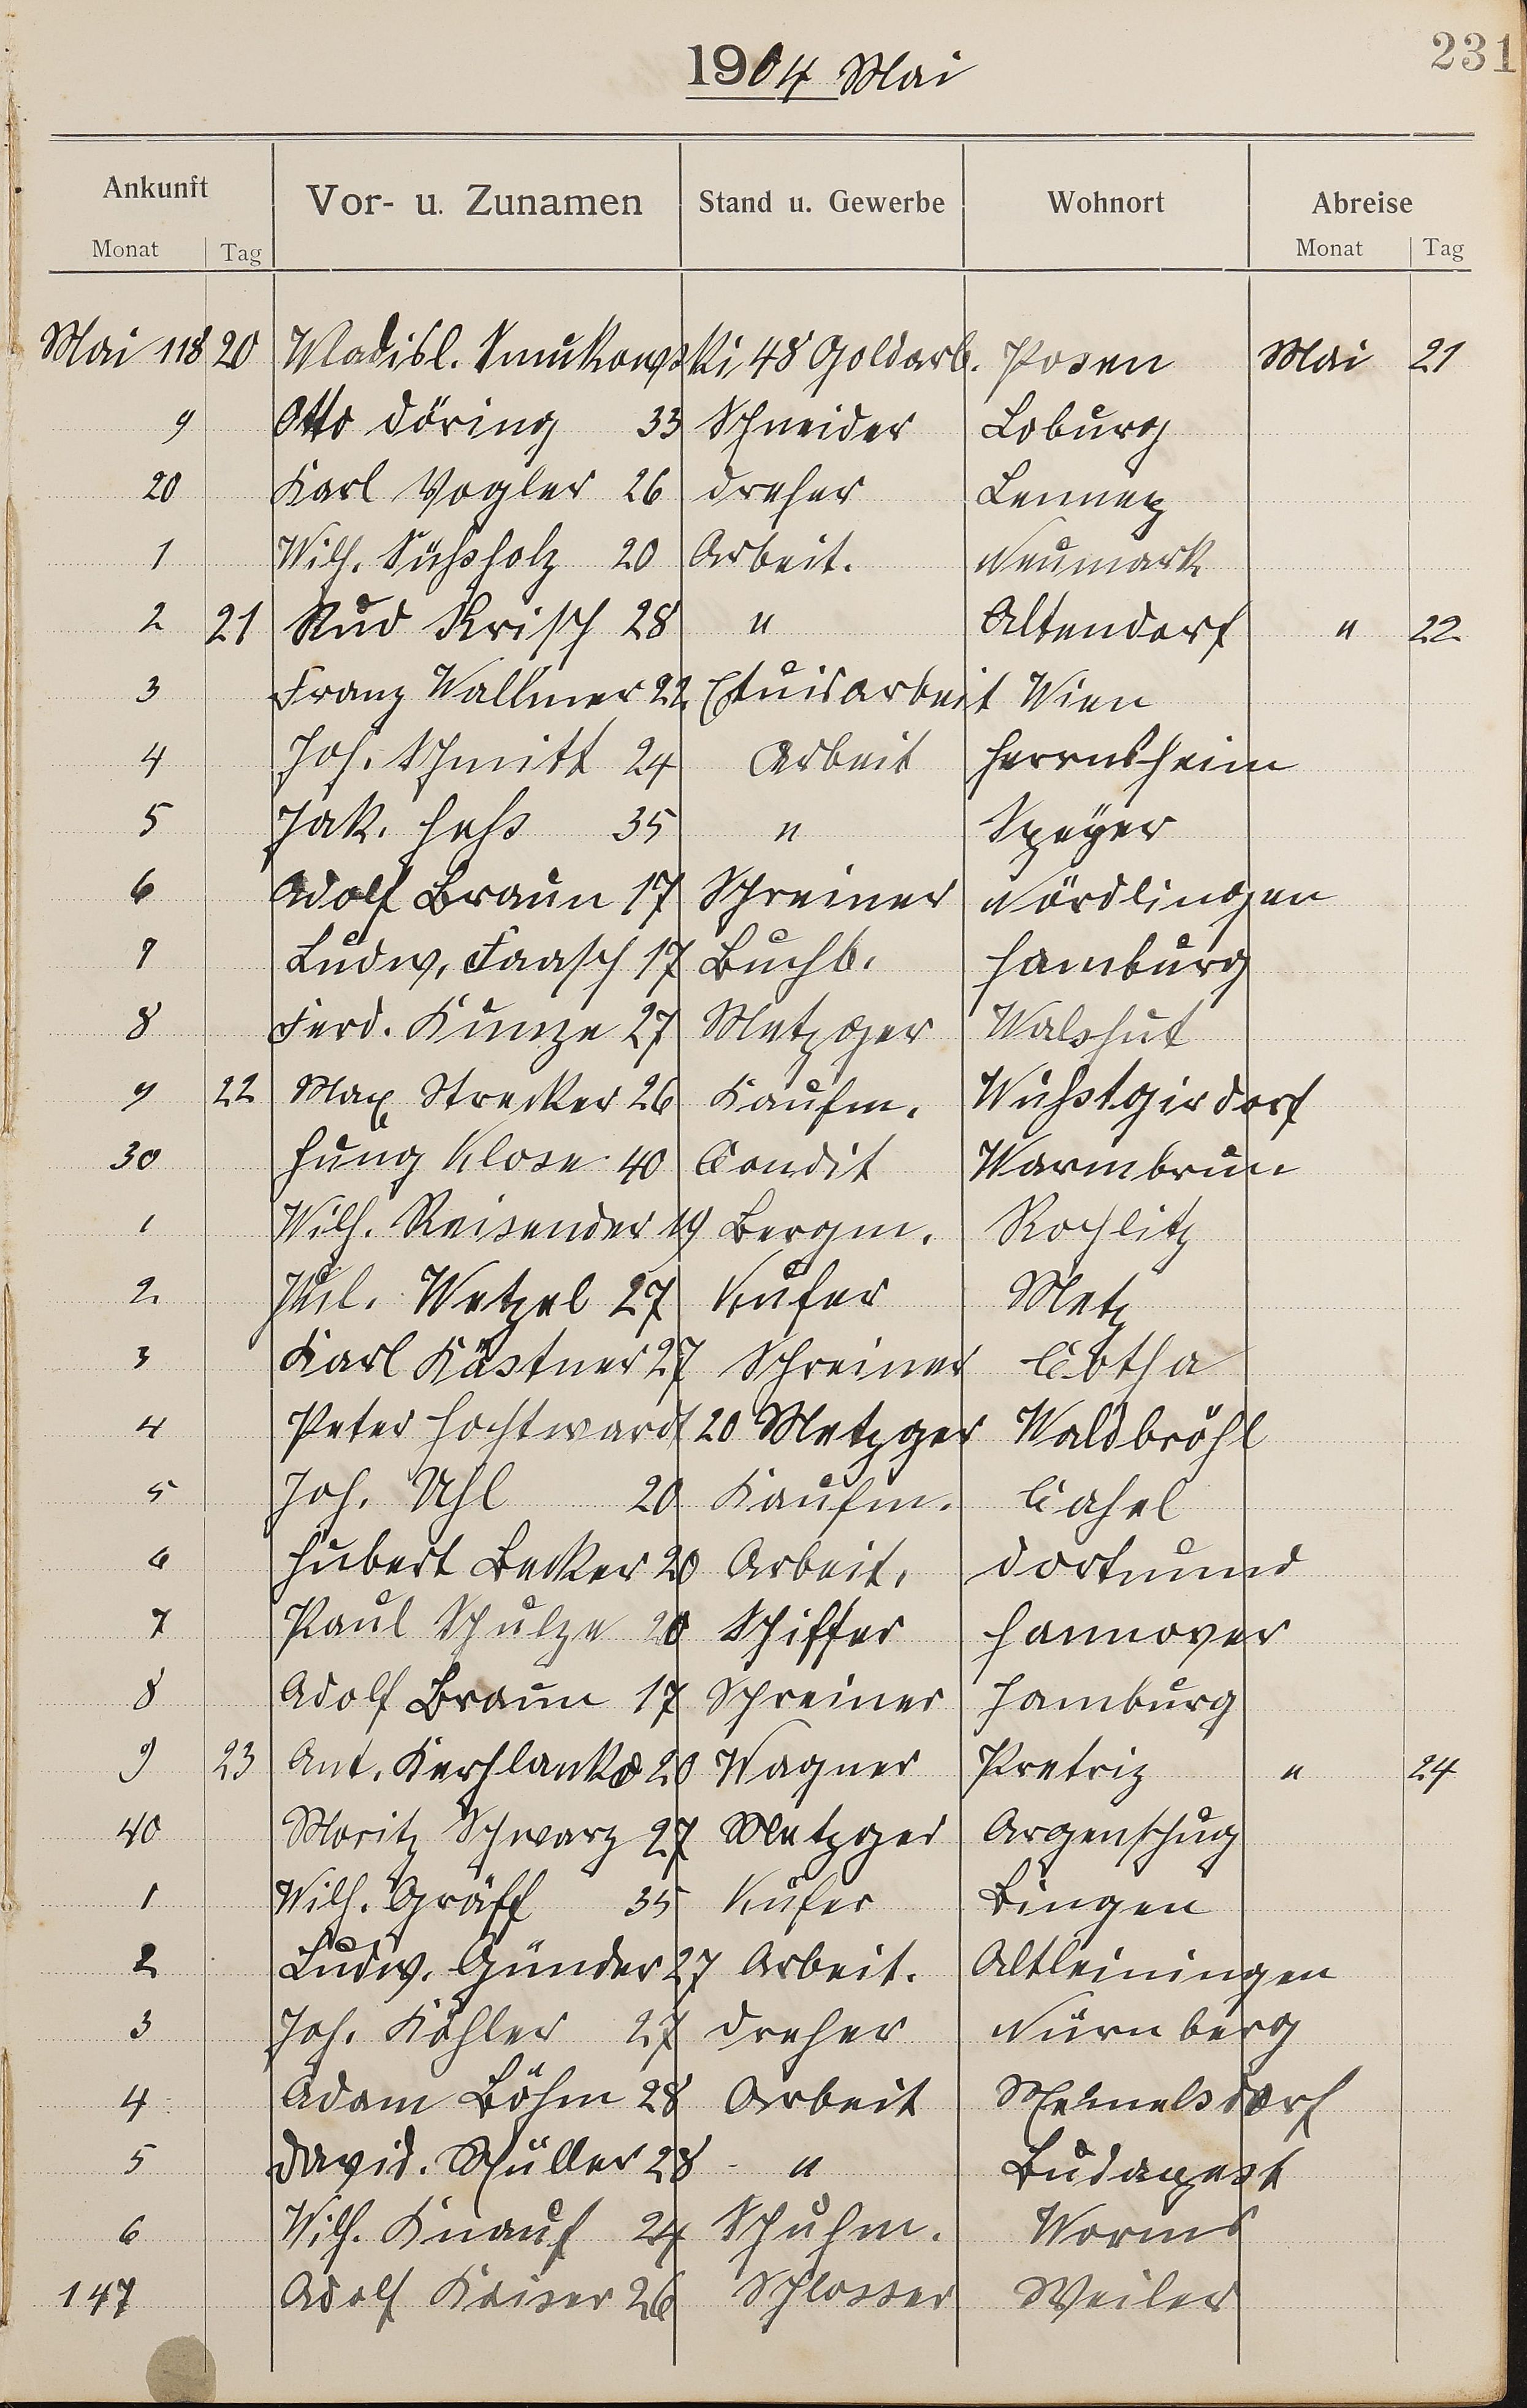 231
1904 Mai
Ankunft Vor- u. Zunamen Stand u. Gewerbe Wohnort Abreise
Monat Tag Monat Tag
Mai 118 20 Wladisl. Smukowski 48 Goldarb. Posen Mai 21
9 Otto Döring 33 Schneider Loburg
20 Karl Vogler 26 Dreher Lennep
1 Wilh. Süßholz 20 Arbeit. Neumark
2 21 Rud Krisch 28 " Altendorf " 22
3 Franz Wallmer 22 Etuisarbeit Wien
4 Joh. Schmitt 24 Arbeit Herrnsheim
5 Jak. Heß 35 " Speyer
6 Adolf Braun 17 Schreiner Nördlingen
7 Ludw. Faasch 17 Buchb. Hamburg
8 Ferd. Kunze 27 Metzger Walshut
9 22 Max Strecker 26 Kaufm. Wüßtgirdorf
30 Hung Klose 40 Condit Warmbrun
1 Wilh. Reisender 19 Bergm. Rochlitz
2 Jul. Wetzel 27 Küfer Metz
3 Karl Kästner 27 Schreiner Cötha
4 Peter Hochtwardt 20 Metzger Waldbröhl
5 Joh. Uhl 20 Kaufm. Cahel
6 Hubert Becker 20 Arbeit. Dortmund
7 Paul Schulze 20 Schiffer Hannover
8 Adolf Braun 17 Schreiner Hamburg
9 23 Ant. Kerhlanko 20 Wagner Pretriz " 24
40 Moritz Schwarz 27 Metzger Argenschug
1 Wilh. Gräff 35 Küfer Bingen
2 Ludw. Günder 27 Arbeit. Altleiningen
3 Joh. Köhler 27 Dreher Nürnberg
4 Adam Böhm 28 Arbeit Memelsdorf
5 David. Müller 28 " Budapest
6 Wilh. Knauf 24 Schuhm. Worms
147 Adolf Kaiser 26 Schlosser Weiler